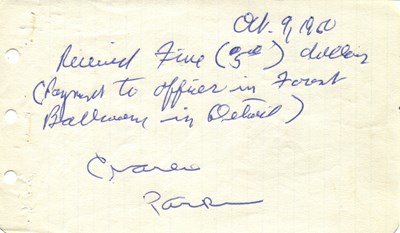 Oct. 9, 1960
Received Five (5.00) dollars
(Payment to officer in Forest
Ballroom in Detail)